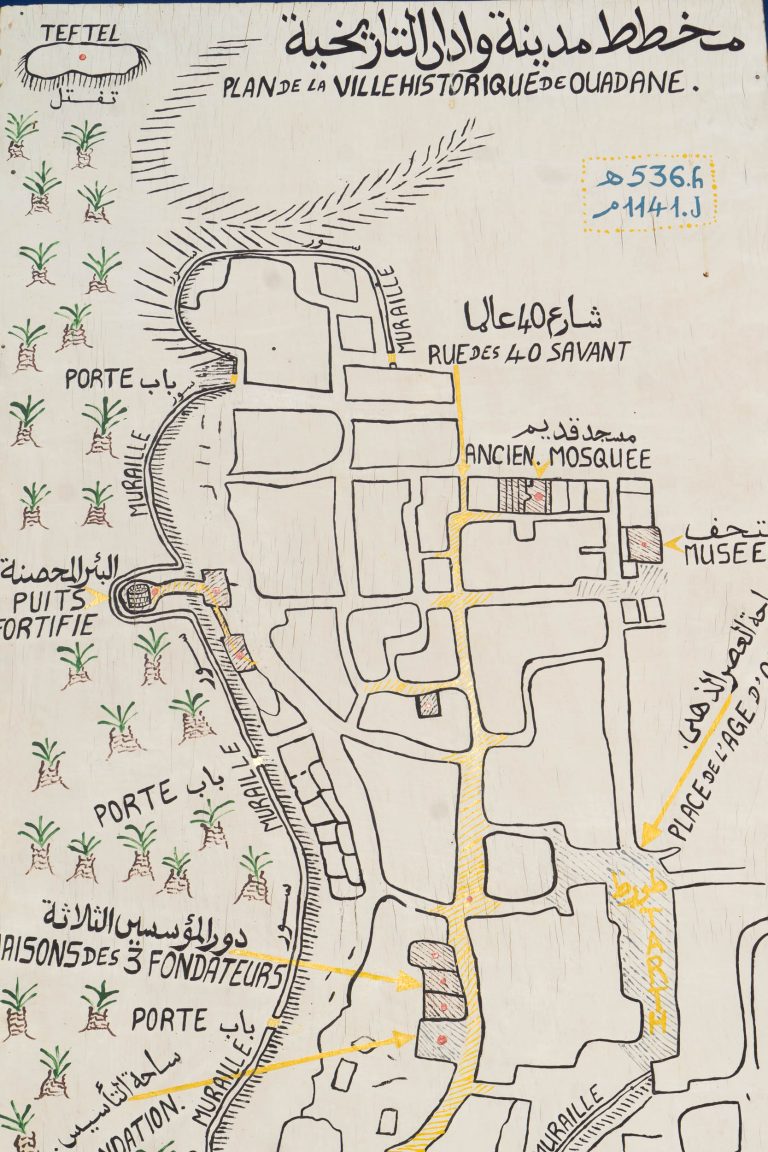 TEFTEL
تفتل
مخطط مدينة وادان التاريخية
PLAN DE LA VILLE HISTORIQUE DE OUADANE.
536.h هـ
1141.J م
سور
سور
MURAILLE
شارع 40 عالما
RUE DES 40 SAVANT
PORTE باب
سور
MURAILLE
مسجد قديم
ANCIEN. MOSQUEE
MUSEE
البئر المحصنة
PUITS
FORTIFIE
سور
PLACE DE L'AGE D'O
العصر الذهبي.
MURAILLE
PORTE باب
طورط
TARTH
دور المؤسسين الثلاثة
MAISONS DES 3 FONDATEURS
سور
PORTE باب
ساحة التأسيس.
NDATION.
MURAILLE
MURAILLE